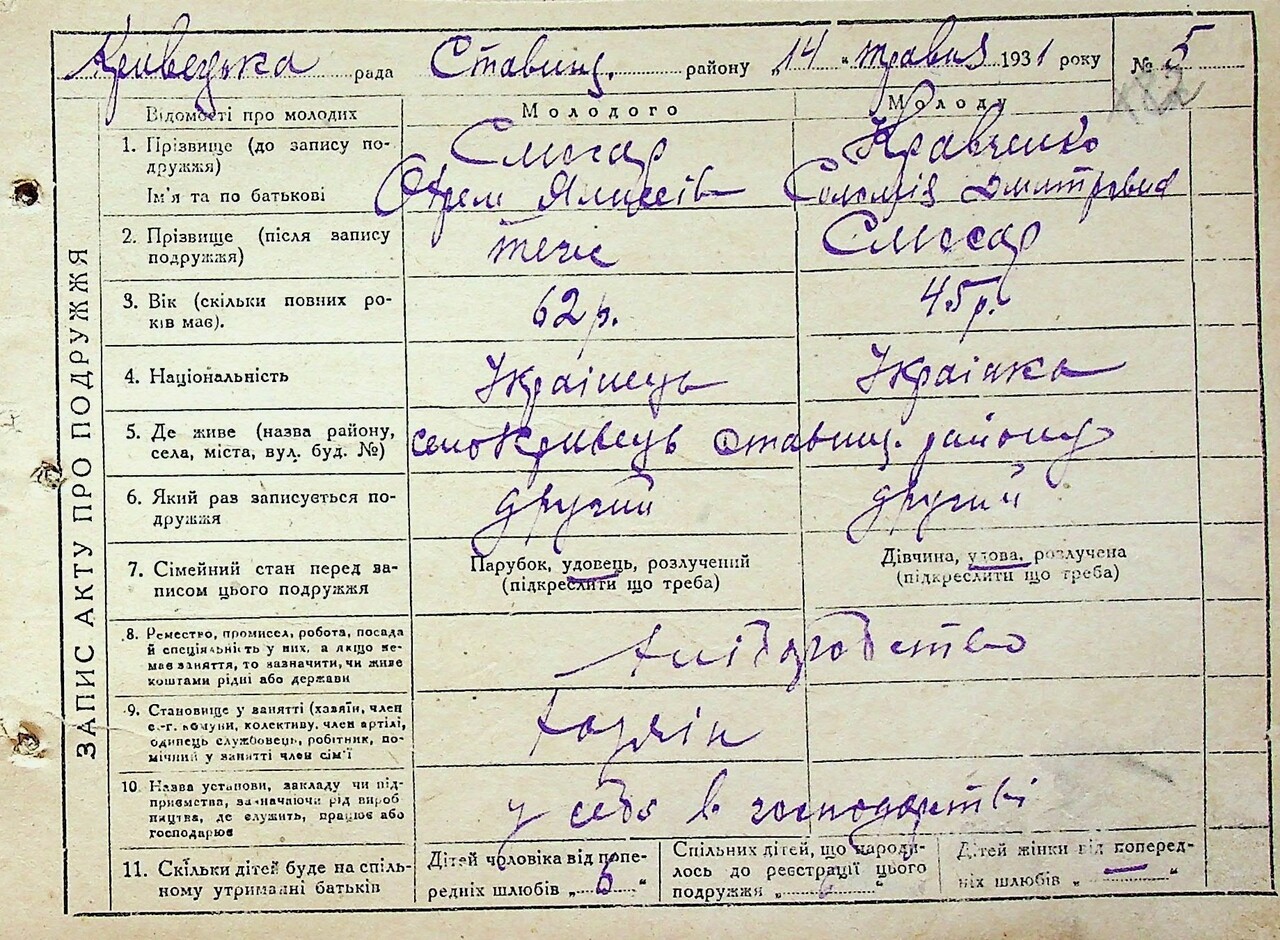 Кривецька рада Ставищ. району „14" травня 1931 року № 5
182
ЗАПИС АКТУ ПРО ПОДРУЖЖЯ
Відомості про молодих Молодого Молоду
1. Прізвище (до запису по- Слюсар Кравченко
дружжя)
Ім'я та по батькові Охрем Соломія Дмитровна
2. Прізвище (після запису теж Слюсар
подружжя)
3. Вік (скільки повних ро- 62 р. 45 р.
ків має).
4. Національність Українець Українка
5. Де живе (назва району, село Кривець Ставищ. району
села, міста, вул. буд. №)
6. Який раз записується по- другий другий
дружжя
7. Сімейний стан перед за- Парубок, удовець, розлучений Дівчина, удова, розлучена
писом цього подружжя (підкреслити що треба) (підкреслити що треба)
8. Ремество, промисел, робота, посада
й спеціяльність у них, а якщо не- хліборобство
має заняття, то зазначити, чи живе
коштами рідні або держави
9. Становище у занятті (хазяїн, член
с.-г. комуни, колективу, член артілі, Хазяїн
одинець службовець, робітник, по-
мічний у занятті член сім'ї
10. Назва установи, закладу чи під-
приємства, зазначаючи рід вироб у себе в господарстві
ництва, де служить, працює або
господарює
11. Скільки дітей буде на спіль- Дітей чоловіка від попе- Спільних дітей, що народи- Дітей жінки від поперед-
ному утриманні батьків редніх шлюбів „ " лось до реєстрації цього ніх шлюбів „ — "
подружжя „ "